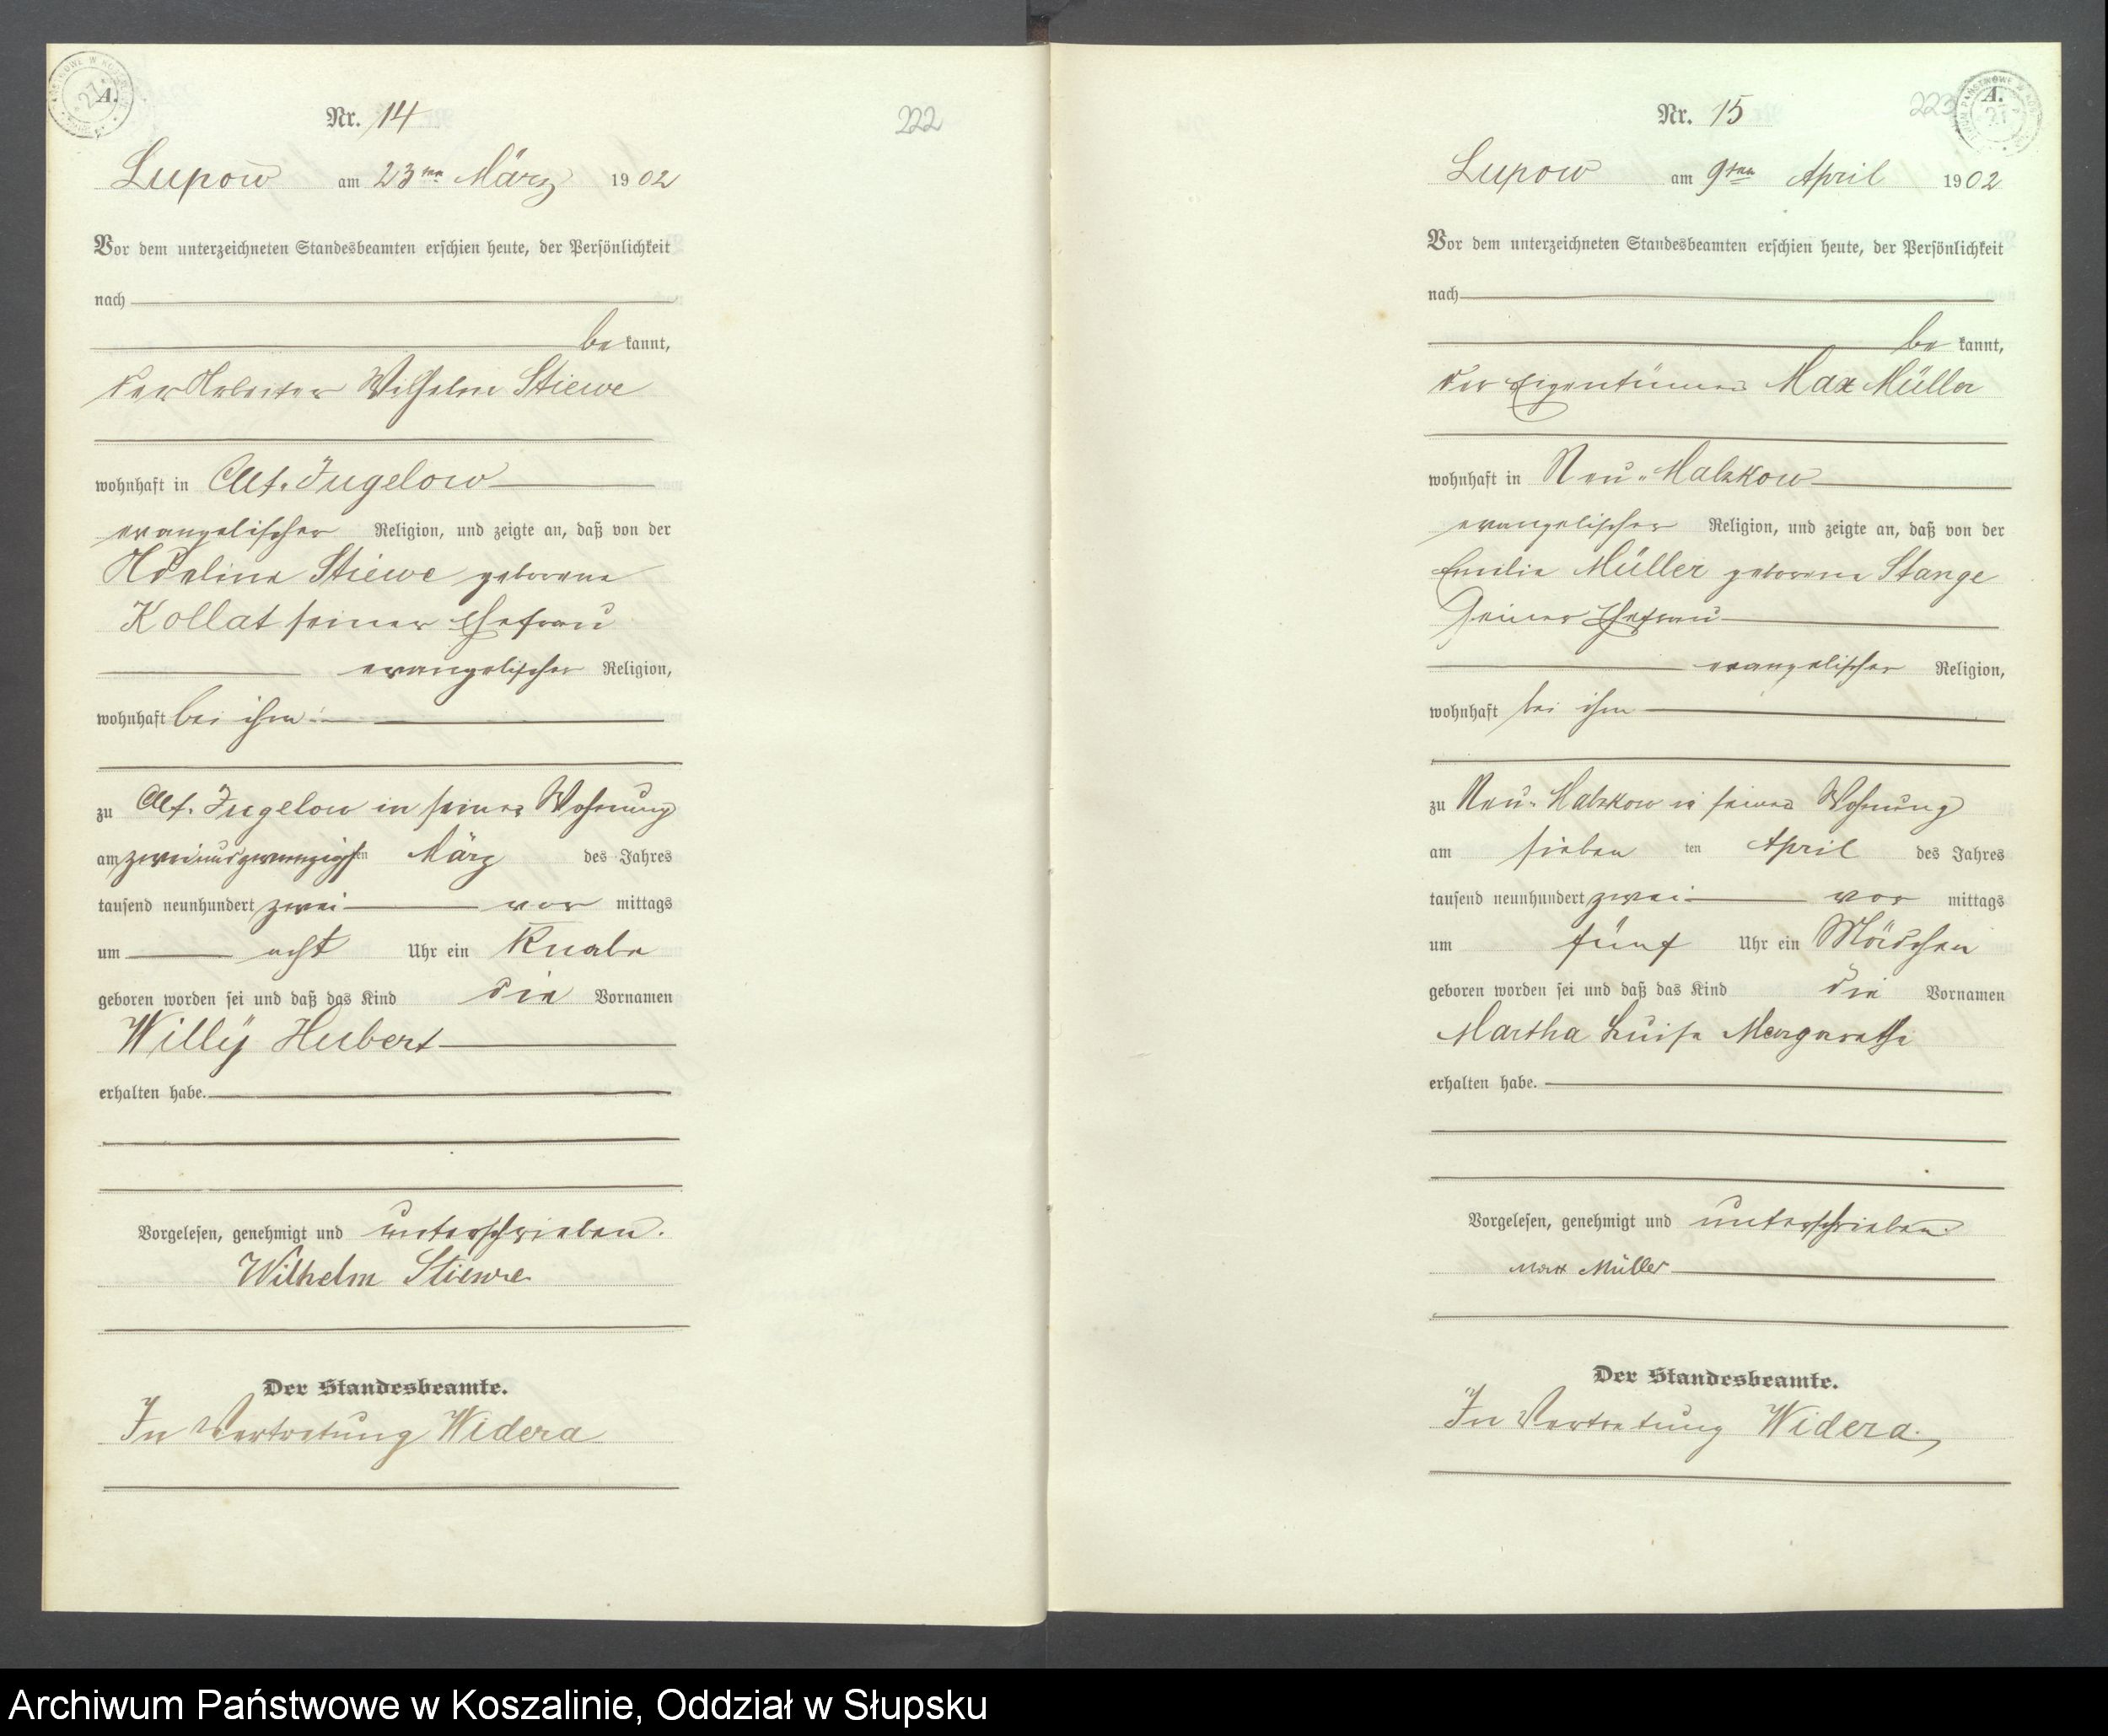 A.
Nr. 14
222
Lupow am 23ten März 1902
Vor dem unterzeichneten Standesbeamten erschien heute, der Persönlichkeit
nach
be kannt,
der Arbeiter Wilhelm Stiewe
wohnhaft in Alt-Jugelow
evangelischer Religion, und zeigte an, daß von der
Adeline Stiewe geborene
Kollat seiner Ehefrau
evangelischer Religion,
wohnhaft bei ihm
zu Alt-Jugelow in seiner Wohnung
am zweiundzwanzigsten März des Jahres
tausend neunhundert zwei vor mittags
um acht Uhr ein Knabe
geboren worden sei und daß das Kind die Vornamen
Willÿ Hubert
erhalten habe.
Vorgelesen, genehmigt und unterschrieben.
Wilhelm Stiewe
Der Standesbeamte.
In Vertretung Widera
223
A.
Nr. 15
Lupow am 9ten April 1902
Vor dem unterzeichneten Standesbeamten erschien heute, der Persönlichkeit
nach
be kannt,
der Eigentümer Max Müller
wohnhaft in Neu-Malzkow
evangelischer Religion, und zeigte an, daß von der
Emilie Müller geborene Stange
seiner Ehefrau
evangelischer Religion,
wohnhaft bei ihm
zu Neu-Malzkow in seiner Wohnung
am sieben ten April des Jahres
tausend neunhundert zwei vor mittags
um fünf Uhr ein Mädchen
geboren worden sei und daß das Kind die Vornamen
Martha Luise Margarethe
erhalten habe.
Vorgelesen, genehmigt und unterschrieben
Max Müller
Der Standesbeamte.
In Vertretung Widera.
Archiwum Państwowe w Koszalinie, Oddział w Słupsku